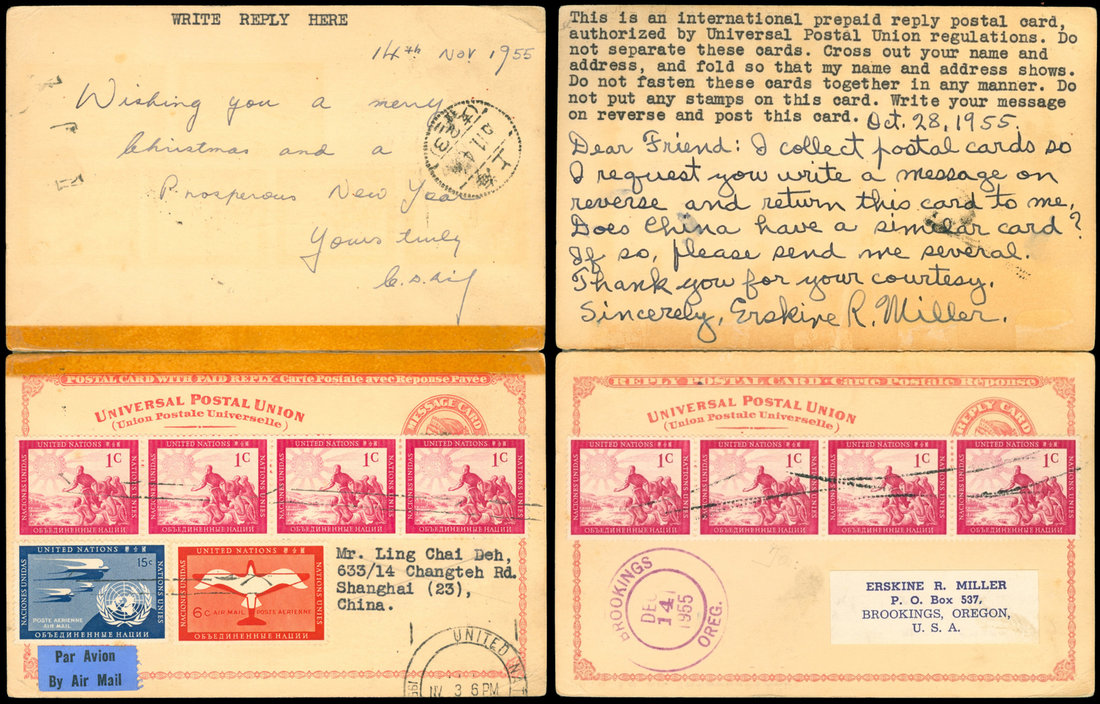 WRITE REPLY HERE
14th Nov 1955
Wishing you a merry
Christmas and a
Prosperous New Year
Yours truly
This is an international prepaid reply postal card,
authorized by Universal Postal Union regulations. Do
not separate these cards. Cross out your name and
address, and fold so that my name and address shows.
Do not fasten these cards together in any manner. Do
not put any stamps on this card. Write your message
on reverse and post this card. Oct. 28, 1955.
Dear Friend: I collect postal cards so
I request you write a message on
reverse and return this card to me.
Does China have a similar card?
If so, please send me several.
Thank you for your courtesy.
Sincerely, Erskine R. Miller.
POSTAL CARD WITH PAID REPLY - Carte Postale avec Reponse Payee
UNIVERSAL POSTAL UNION
(Union Postale Universelle)
MESSAGE CARD
UNITED NATIONS
1C
NACIONES UNIDAS
NATIONS UNIES
ОБЪЕДИНЕННЫЕ НАЦИИ
UNITED NATIONS
1C
NACIONES UNIDAS
NATIONS UNIES
ОБЪЕДИНЕННЫЕ НАЦИИ
UNITED NATIONS
1C
NACIONES UNIDAS
NATIONS UNIES
ОБЪЕДИНЕННЫЕ НАЦИИ
UNITED NATIONS
1C
NACIONES UNIDAS
NATIONS UNIES
ОБЪЕДИНЕННЫЕ НАЦИИ
UNITED NATIONS
15c
NACIONES UNIDAS
NATIONS UNIES
POSTE AERIENNE
AIR MAIL
ОБЪЕДИНЕННЫЕ НАЦИИ
UNITED NATIONS
NACIONES UNIDAS
NATIONS UNIES
6c AIR MAIL POSTE AERIENNE
ОБЪЕДИНЕННЫЕ НАЦИИ
Mr. Ling Chai Deh,
633/14 Changteh Rd.
Shanghai (23),
China.
Par Avion
By Air Mail
UNITED NAT
NV 3 6 PM
REPLY POSTAL CARD - Carte Postale Reponse
UNIVERSAL POSTAL UNION
(Union Postale Universelle)
REPLY CARD
UNITED NATIONS
1C
NACIONES UNIDAS
NATIONS UNIES
ОБЪЕДИНЕННЫЕ НАЦИИ
UNITED NATIONS
1C
NACIONES UNIDAS
NATIONS UNIES
ОБЪЕДИНЕННЫЕ НАЦИИ
UNITED NATIONS
1C
NACIONES UNIDAS
NATIONS UNIES
ОБЪЕДИНЕННЫЕ НАЦИИ
UNITED NATIONS
1C
NACIONES UNIDAS
NATIONS UNIES
ОБЪЕДИНЕННЫЕ НАЦИИ
BROOKINGS
DEC
14
1955
OREG.
ERSKINE R. MILLER
P. O. Box 537,
BROOKINGS, OREGON,
U. S. A.